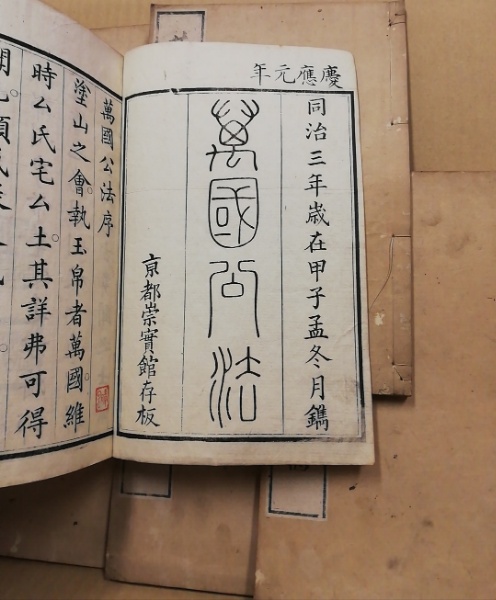 慶應元年
同治三年歳在甲子孟冬月鐫
萬國公法
京都崇實館存板
萬國公法序
塗山之會執玉帛者萬國維
時厶氏宅厶土其詳弗可得